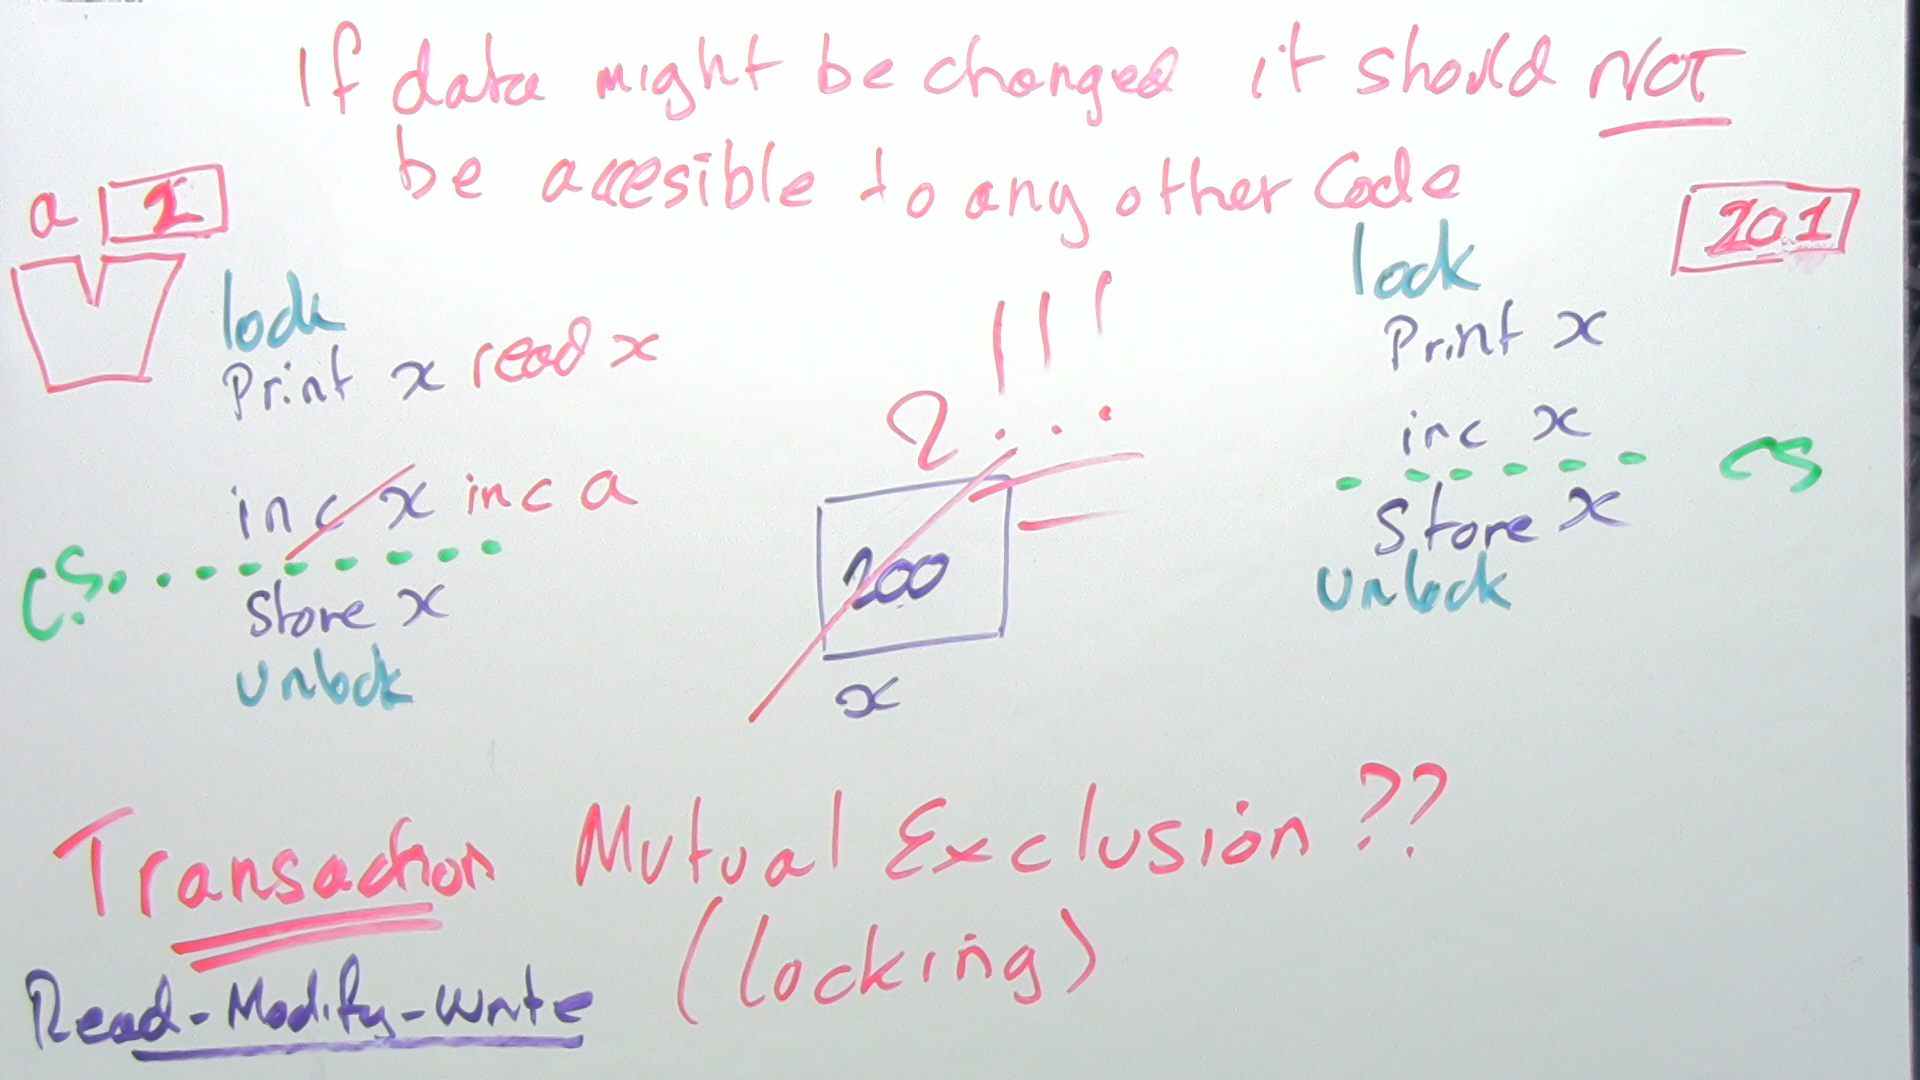 If data might be changed it should NOT
be accesible to any other Code
a 2
201
lock
Print x read x
inc x inc a
CS
Store x
unlock
2 ! ! !
200
x
lock
Print x
inc x
CS
Store x
Unlock
Transaction Mutual Exclusion ??
(locking)
Read-Modify-Write